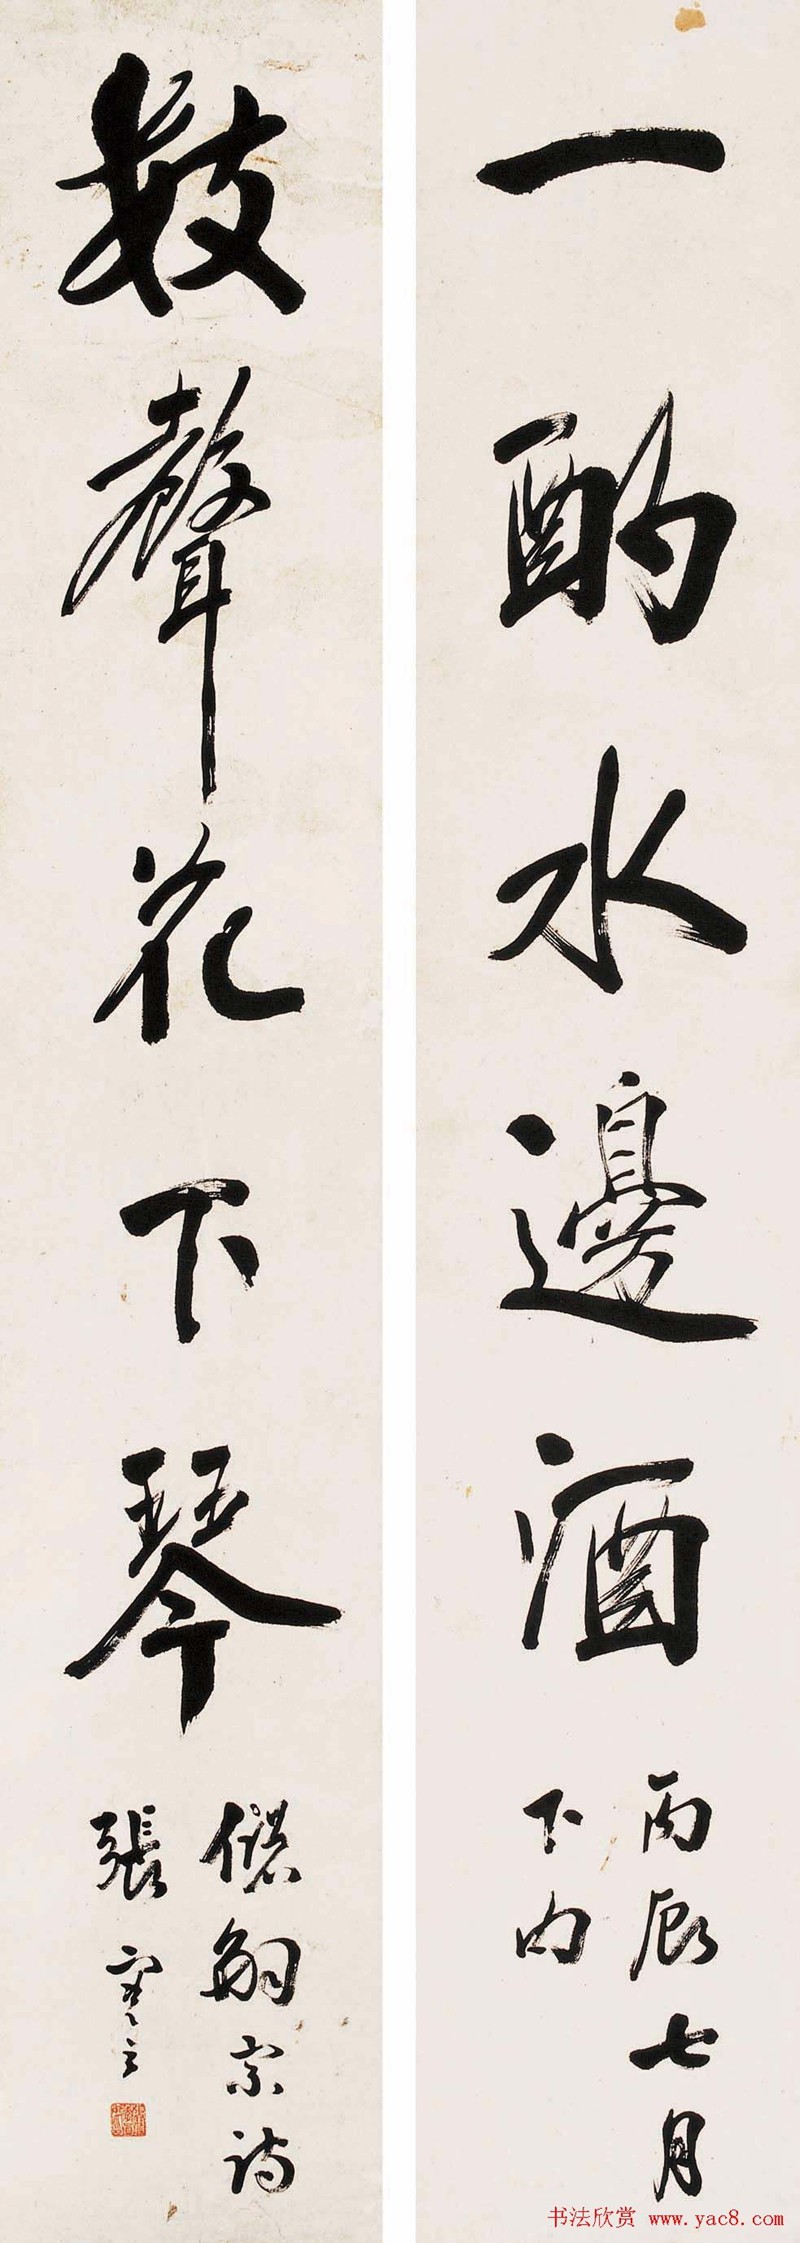 一酌水邊酒
丙辰七月
下
數聲花下琴
儲嗣宗詩
張謇
书法欣赏 www.yac8.com